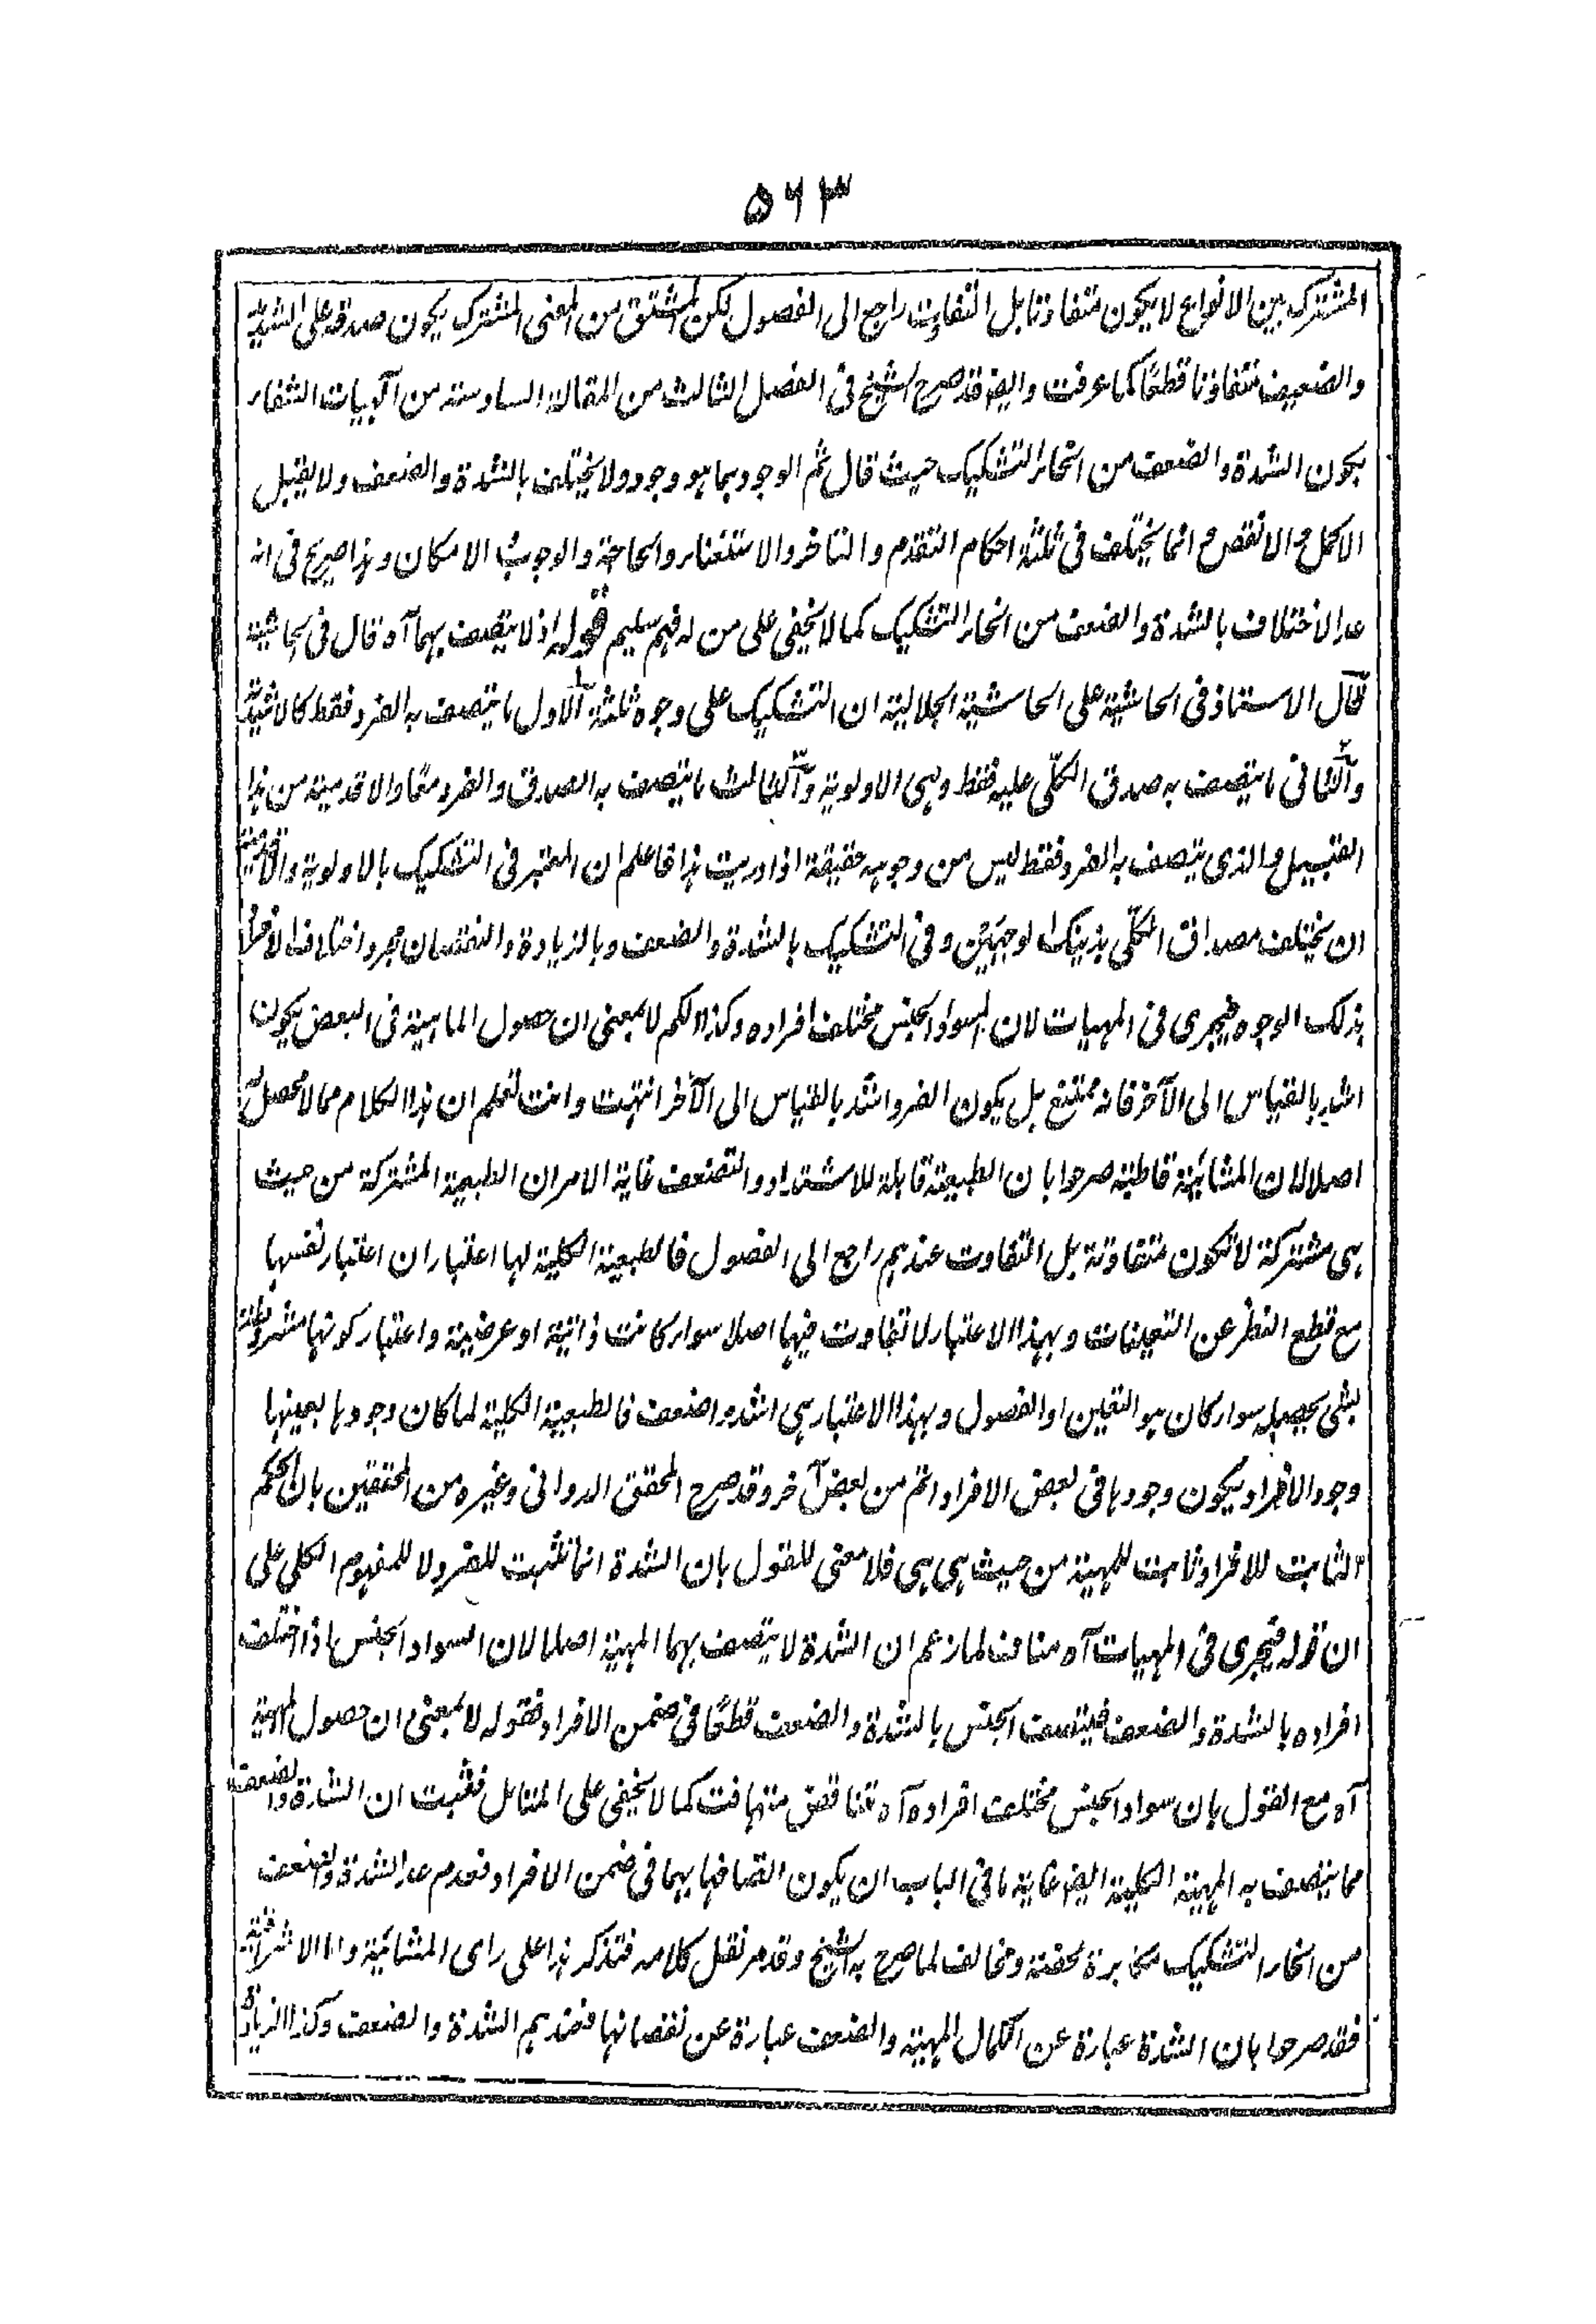 ۵۶۳
المشترك بين الانواع لا يكون متفاوتا بل التفاوت راجع الى الفصول لكن المشتق من المعنى المشترك يكون صدقه على الشديد
والضعيف متفاوتا قطعًا كما عرفت وايضا قد صرح الشيخ فى الفصل الثالث من المقالة السادسة من آلهيات الشفاء
بكون الشدة والضعف من انحاء التشكيك حيث قال ثم الوجود بما هو وجود ولا يختلف بالشدة والضعف ولا يقبل
الاكمل والانقص وانما يختلف فى ثلثة احكام التقدم والتاخر والاستغناء والحاجة والوجوب والامكان وهذا صريح فى انه
عد الاختلاف بالشدة والضعف من انحاء التشكيك كما لا يخفى على من له فهم سليم قوله اذ لا يتصف بهما آه قال فى الحاشية
قال الاستاذ فى الحاشية على الحاشية الجلالية ان التشكيك على وجوه ثلثة الاول ما يتصف به الفرد فقط كالاشدية
والثانى ما يتصف به صدق الكلّى عليه فقط وهى الاولوية والثالث ما يتصف به الصدق والفرد معًا والاقدمية من هذا
القبيل والذى يتصف به الفرد فقط ليس من وجوهه حقيقة اذا دريت هذا فاعلم ان المعتبر فى التشكيك بالاولوية والاقدمية
ان يختلف مصداق الكلّى بذينك الوجهين وفى التشكيك بالشدة والضعف وبالزيادة والنقصان مجرد اختلاف الافراد
بذلك الوجوه فيجرى فى المهيات لان السواد الجنس مختلف افراده وكذا الكم لا بمعنى ان حصول الماهية فى البعض يكون
اشد بالقياس الى الآخر فانه ممتنع بل يكون الفرد اشد بالقياس الى الآخر انتهت وانت تعلم ان هذا الكلام مما لا محصل له
اصلا لان المشائية قاطبة صرحوا بان الطبيعة قابلة للاشتداد والتضعف غاية الامر ان الطبيعة المشتركة من حيث
هى مشتركة لا تكون متفاوتة بل التفاوت عندهم راجع الى الفصول فالطبيعة الكلية لها اعتباران اعتبار نفسها
مع قطع النظر عن التعينات وبهذا الاعتبار لا تفاوت فيها اصلا سواء كانت ذاتية او عرضية واعتبار كونها مشروطة
بشئ يحصله سواء كان هو التعين او الفصول وبهذا الاعتبار هى اشد واضعف فالطبيعة الكلية لما كان وجودها بعينها
وجود الافراد يكون وجودها فى بعض الافراد اتم من بعض آخر وقد صرح المحقق الدوانى وغيره من المحققين بان الحكم
الثابت للافراد ثابت للمهية من حيث هى هى فلا معنى للقول بان الشدة انما تثبت للفرد لا للمفهوم الكلى على
ان قوله فيجرى فى المهيات آه مناف لما زعم ان الشدة لا يتصف بها المهية اصلا لان السواد الجنس اذا اختلف
افراده بالشدة والضعف فيتصف الجنس بالشدة والضعف قطعًا فى ضمن الافراد فقوله لا بمعنى ان حصول المهية
آه مع القول بان سواد الجنس مختلف افراده آه تناقض متهافت كما لا يخفى على المتامل فثبت ان الشدة والضعف
مما يتصف به المهية الكلية ايضا غاية ما فى الباب ان يكون اتصافها بهما فى ضمن الافراد فعدم عد الشدة والضعف
من انحاء التشكيك مكابرة محضة ومخالف لما صرح به الشيخ وقد مر نقل كلامه فتذكر هذا على راى المشائية واما الاشراقية
فقد صرحوا بان الشدة عبارة عن اكمال المهية والضعف عبارة عن نقصانها فعندهم الشدة والضعف وكذا الزيادة